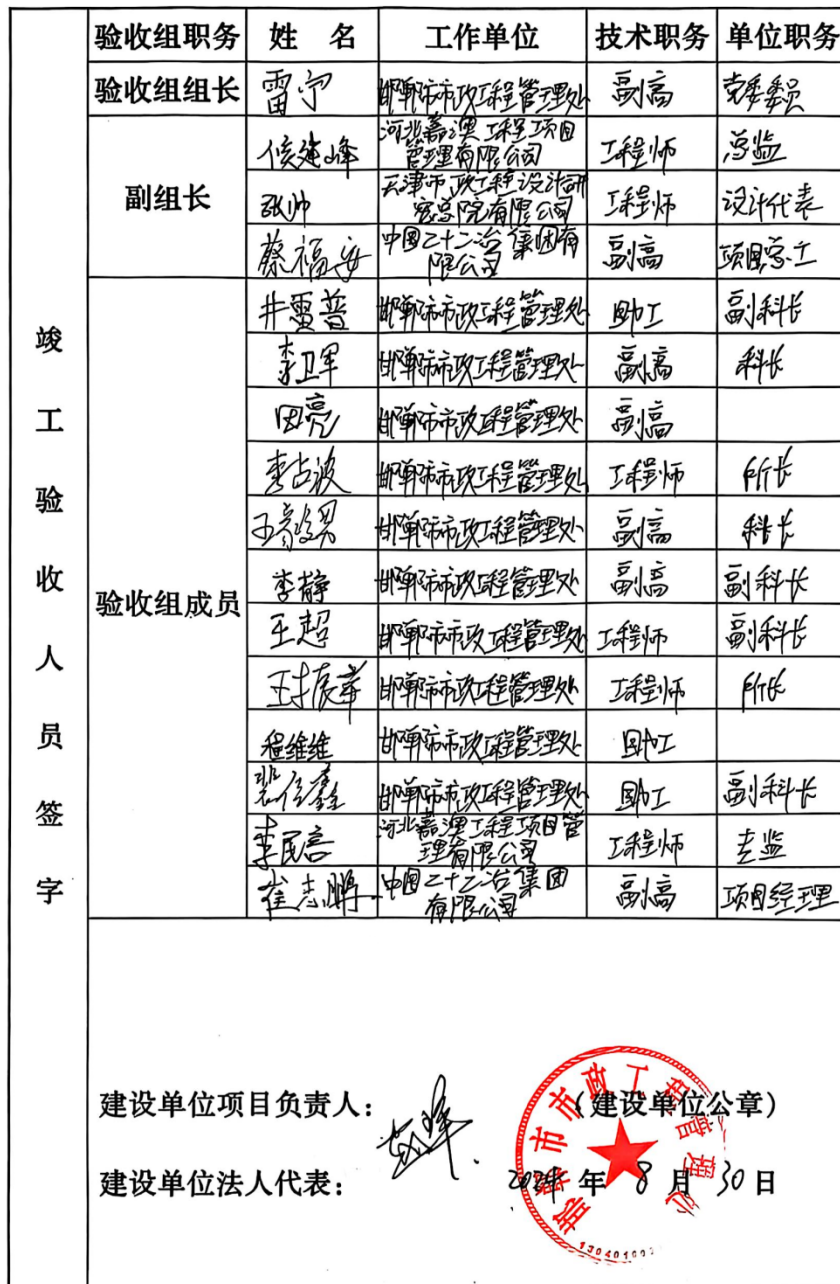 竣工验收人员签字
验收组职务 姓 名 工作单位 技术职务 单位职务
验收组组长 雷宁 邯郸市市政工程管理处 副高 党委委员
副组长
侯建峰 河北嘉澳工程项目
管理有限公司 工程师 总监
张帅 天津市政工程设计研
究总院有限公司 工程师 设计代表
蔡福安 中国二十二冶集团有
限公司 副高 项目总工
验收组成员
井雷普 邯郸市市政工程管理处 助工 副科长
李卫军 邯郸市市政工程管理处 副高 科长
田亮 邯郸市市政工程管理处 副高
李占波 邯郸市市政工程管理处 工程师 所长
邯郸市市政工程管理处 副高 科长
李静 邯郸市市政工程管理处 副高 副科长
王超 邯郸市市政工程管理处 工程师 副科长
王振華 邯郸市市政工程管理处 工程师 所长
程维维 邯郸市市政工程管理处 助工
邯郸市市政工程管理处 助工 副科长
河北嘉澳工程项目管
理有限公司 工程师 专监
崔志鹏 中国二十二冶集团
有限公司 副高 项目经理
建设单位项目负责人： （建设单位公章）
建设单位法人代表： 2024 年 8 月 30 日
邯郸市市政工程管理处